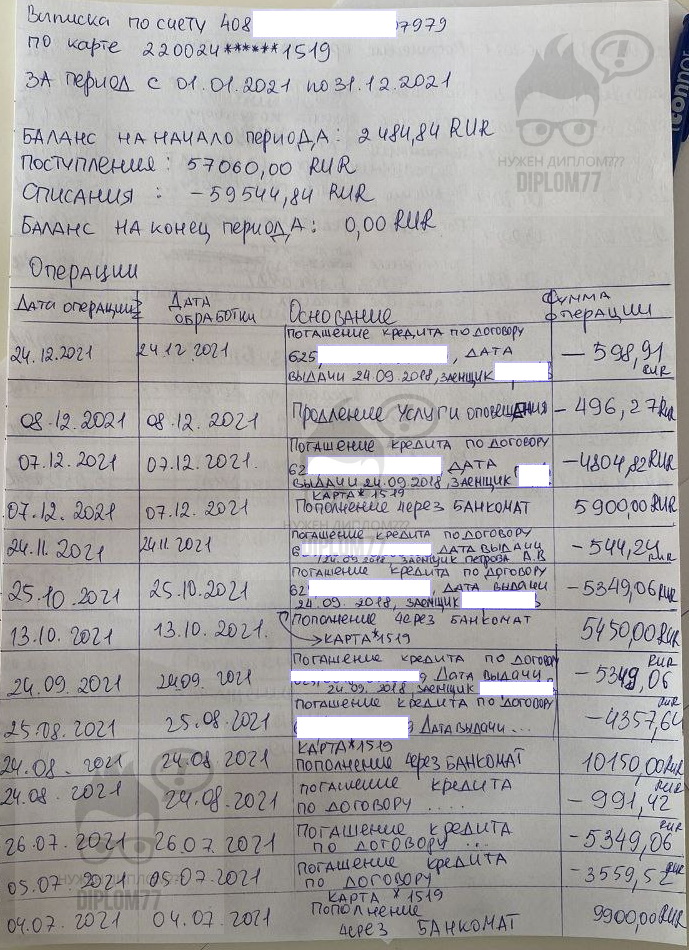 Выписка по счету 408 7979
по карте 220024******1519
за период с 01.01.2021 по 31.12.2021
Баланс на начало периода: 2484,84 RUR
Поступления: 57060,00 RUR
Списания: -59544,84 RUR
Баланс на конец периода: 0,00 RUR
Операции
Дата операции Дата обработки Основание Сумма операции
24.12.2021 24.12.2021 Погашение кредита по договору
625, , дата
выдачи 24.09.2018, заемщик
-598,91 RUR
08.12.2021 08.12.2021 Продление услуги оповещания -496,27 RUR
07.12.2021 07.12.2021. Погашение кредита по договору
62 дата
выдачи 24.09.2018, заемщик
-4804,82 RUR
07.12.2021 07.12.2021 Карта*1519
Пополнение через банкомат 5900,00 RUR
24.11.2021 24.11.2021 Погашение кредита по договору
6 дата выдачи
24.09.2018, заемщик Петрова А.В
-544,24 RUR
25.10.2021 25.10.2021 Погашение кредита по договору
62 , дата выдачи
24.09.2018, заемщик
-5349,06 RUR
13.10.2021 13.10.2021. Пополнение через банкомат
карта*1519
5450,00 RUR
24.09.2021 24.09.2021 Погашение кредита по договору
Дата выдачи
24.09.2018, заемщик
-5349,06 RUR
25.08.2021 25.08.2021 Погашение кредита по договору
Дата выдачи...
-4357,64 RUR
24.08.2021 24.08.2021 Карта*1519
Пополнение через банкомат 10150,00 RUR
24.08.2021 24.08.2021 Погашение кредита
по договору ....
-991,42 RUR
26.07.2021 26.07.2021 Погашение кредита
по договору ...
-5349,06 RUR
05.07.2021 05.07.2021 Погашение кредита
по договору
-3559,52 RUR
04.07.2021 04.07.2021 Карта*1519
Пополнение
через банкомат
9900,00 RUR
НУЖЕН ДИПЛОМ???
DIPLOM77
НУЖЕН ДИПЛОМ???
НУЖЕН ДИПЛОМ???
DIPLOM77